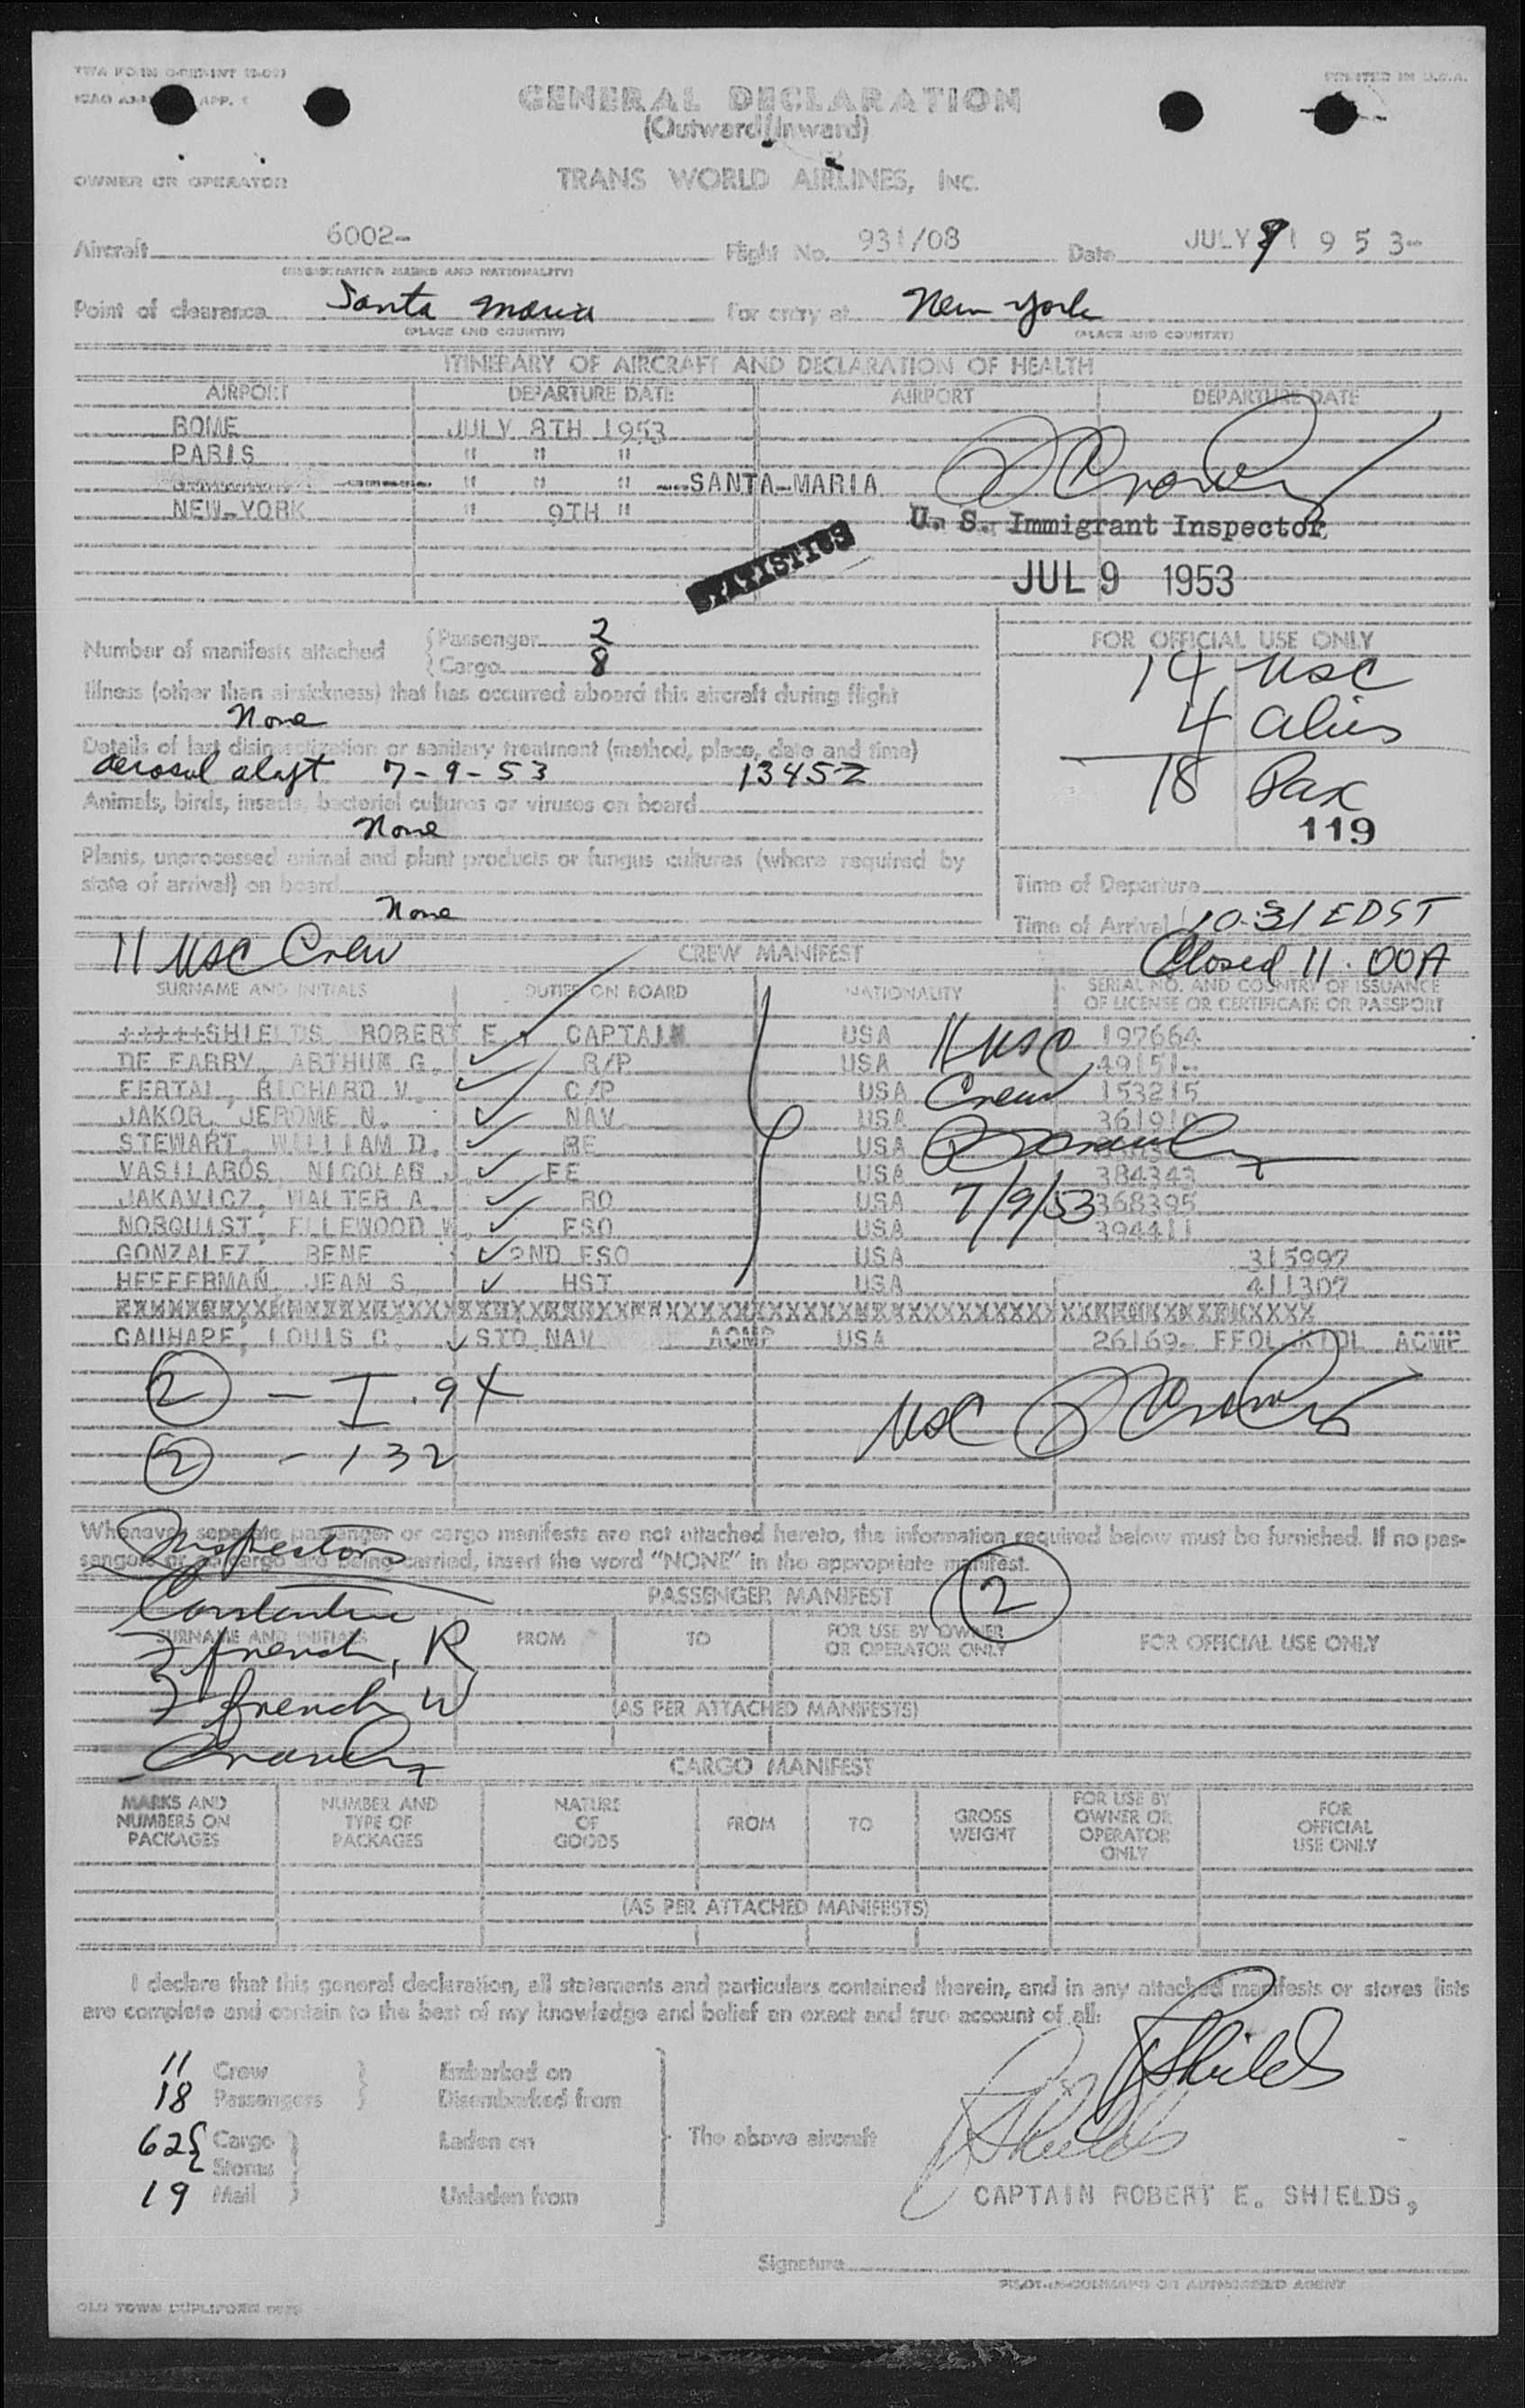 PRINTED IN U.S.A.
GENERAL DECLARATION
(Outward/Inward)
OWNER OR OPERATOR TRANS WORLD AIRLINES, INC.
Aircraft 6002- Flight No. 931/08 Date JULY 9 1953-
(REGISTRATION MARKS AND NATIONALITY)
Point of clearance Santa Maria For entry at New York
(PLACE AND COUNTRY) (PLACE AND COUNTRY)
ITINERARY OF AIRCRAFT AND DECLARATION OF HEALTH
AIRPORT DEPARTURE DATE AIRPORT DEPARTURE DATE
ROME JULY 8TH 1953
PARIS " " "
" " " SANTA-MARIA
NEW-YORK " 9TH "
U. S. Immigrant Inspector
STATISTICS
JUL 9 1953
Number of manifests attached {Passenger 2
{Cargo 8
FOR OFFICIAL USE ONLY
14 USC
4 aliens
18 Pax
119
Illness (other than airsickness) that has occurred aboard this aircraft during flight
None
Details of last disinsectization or sanitary treatment (method, place, date and time)
aerosol alaft 7-9-53 1345Z
Animals, birds, insects, bacterial cultures or viruses on board
None
Plants, unprocessed animal and plant products or fungus cultures (where required by
state of arrival) on board
None
Time of Departure
Time of Arrival 10.31 EDST
Closed 11.00A
11 USC Crew
CREW MANIFEST
SURNAME AND INITIALS DUTIES ON BOARD NATIONALITY SERIAL NO. AND COUNTRY OF ISSUANCE
OF LICENSE OR CERTIFICATE OR PASSPORT
+++++SHIELDS ROBERT E. CAPTAIN USA 197664
DE FARRY, ARTHUR G. R/P USA 49151--
FERTAL, RICHARD V. C/P USA 153215
JAKOB, JEROME N. NAV USA 361910
STEWART, WILLIAM D. RE USA
VASILAROS, NICOLAS J. FE USA 384343
JAKAVICZ, WALTER A. RO USA 368395
NORQUIST, ELLEWOOD W. FSO USA 394411
GONZALEZ, RENE 2ND FSO USA 315997
HEFFERMAN, JEAN S. HST USA 411307
CAUHAPE, LOUIS C. STD NAV ACMP USA 26169- FFOL KTOL ACMP
11 USC
Crew
7/9/53
2 - I.94
2 - 132
USC
Whenever separate passenger or cargo manifests are not attached hereto, the information required below must be furnished. If no pas-
sengers or no cargo are being carried, insert the word "NONE" in the appropriate manifest.
Inspectors
Constantine
French, R
French W
Crowley
PASSENGER MANIFEST 2
SURNAME AND INITIALS FROM TO FOR USE BY OWNER
OR OPERATOR ONLY FOR OFFICIAL USE ONLY
(AS PER ATTACHED MANIFESTS)
CARGO MANIFEST
MARKS AND
NUMBERS ON
PACKAGES
NUMBER AND
TYPE OF
PACKAGES
NATURE
OF
GOODS
FROM
TO
GROSS
WEIGHT
FOR USE BY
OWNER OR
OPERATOR
ONLY
FOR
OFFICIAL
USE ONLY
(AS PER ATTACHED MANIFESTS)
I declare that this general declaration, all statements and particulars contained therein, and in any attached manifests or stores lists
are complete and contain to the best of my knowledge and belief an exact and true account of all:
11 Crew Embarked on
18 Passengers Disembarked from
62 Cargo Laden on The above aircraft
Stores
19 Mail Unladen from
Shields
Shields
CAPTAIN ROBERT E. SHIELDS,
Signature
PILOT-IN-COMMAND OR AUTHORIZED AGENT